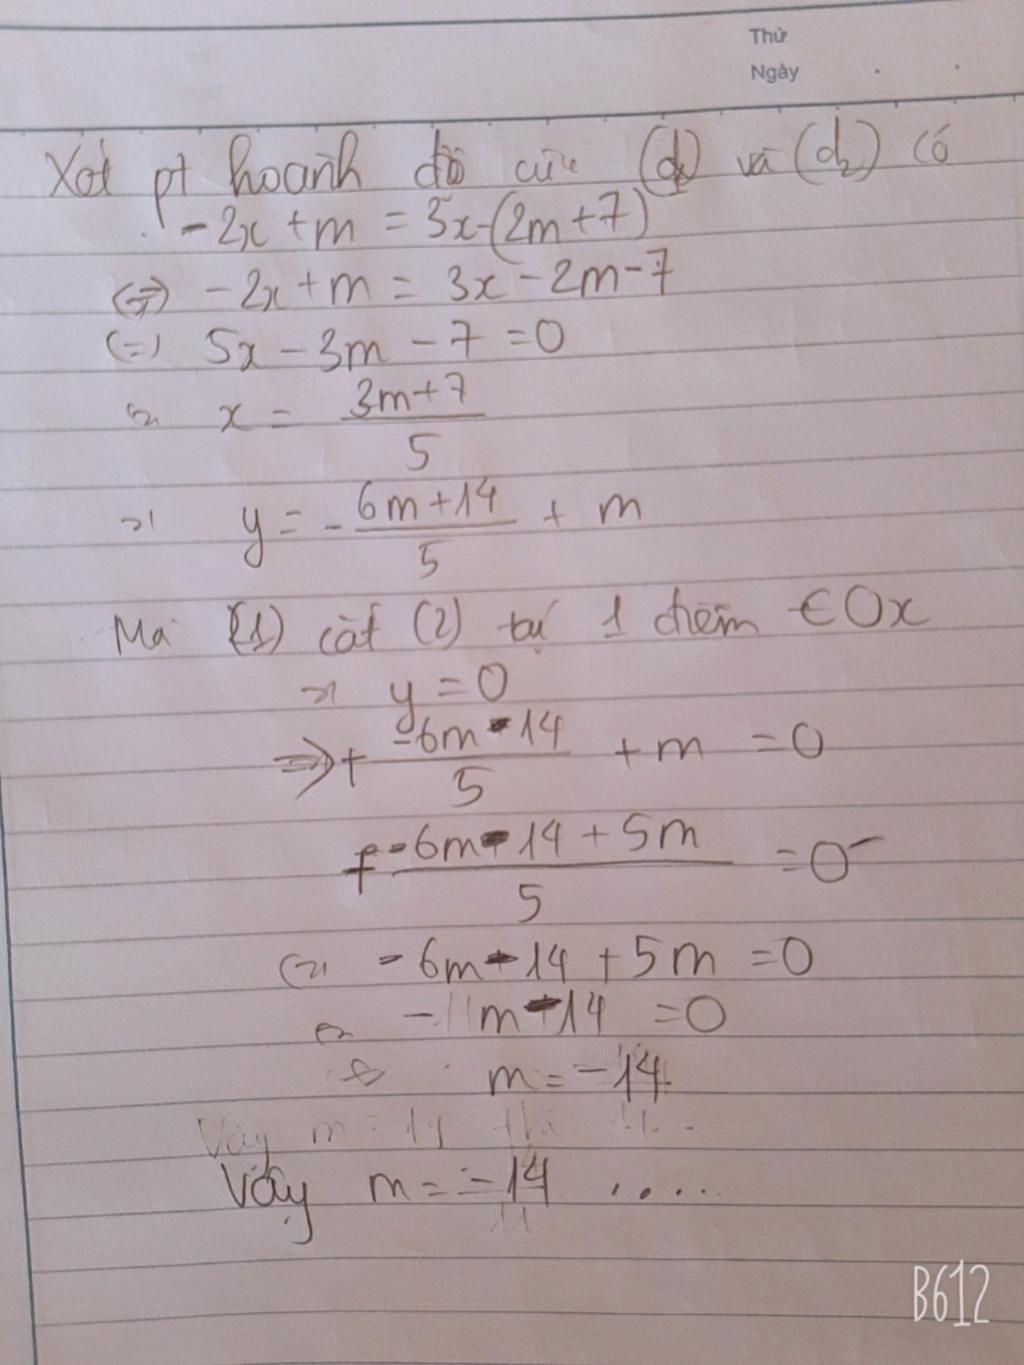 Thứ
Ngày
Xét pt hoành độ của (d₁) và (d₂) có
-2x + m = 3x-(2m+7)
(=) -2x + m = 3x - 2m - 7
(=) 5x - 3m - 7 = 0
x = 3m+7 / 5
=) y = - 6m+14 / 5 + m
Mà (1) cắt (2) tại 1 điểm ∈ Ox
=) y = 0
=> + -6m-14 / 5 + m = 0
-6m-14+5m / 5 = 0
(=) -6m-14+5m = 0
-m-14 = 0
m = -14
Vậy m = 14 thì
Vậy m = -14 .....
B612